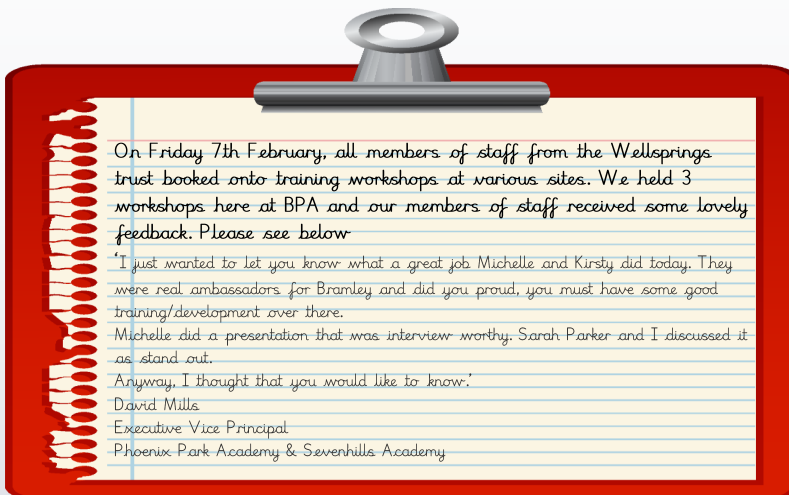 On Friday 7th February, all members of staff from the Wellsprings
trust booked onto training workshops at various sites. We held 3
workshops here at BPA and our members of staff received some lovely
feedback. Please see below
‘I just wanted to let you know what a great job Michelle and Kirsty did today. They
were real ambassadors for Bramley and did you proud, you must have some good
training/development over there.
Michelle did a presentation that was interview worthy. Sarah Parker and I discussed it
as stand out.
Anyway, I thought that you would like to know.’
David Mills
Executive Vice Principal
Phoenix Park Academy & Sevenhills Academy